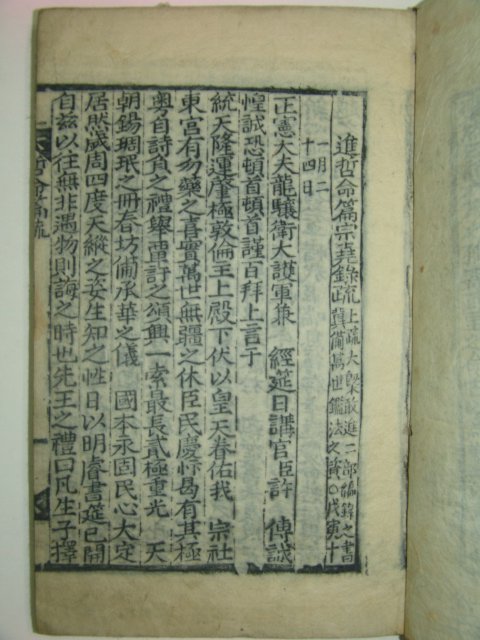 進哲命篇宗堯錄疏 上疏大槩敢進二部編緝之書冀備萬世鑑法之資○戊寅十
一月二十四日
正憲大夫龍驤衛大護軍兼 經筵日講官臣許 傳誠
惶誠恐頓首頓首謹百拜上言于
統天隆運肇極敦倫王上殿下伏以皇天眷佑我 宗社
東宮有勿藥之喜實萬世無疆之休臣民慶忭曷有其極
粤自詩負之禮擧重訂之頌興一索最長貳極重光 天
朝錫琱珉之冊春坊備承華之儀 國本永固民心大定
居然歲周四度天縱之姿生知之性日以明睿書筵已開
自茲以往無非遇物則誨之時也先王之禮曰凡生子擇
哲命篇疏